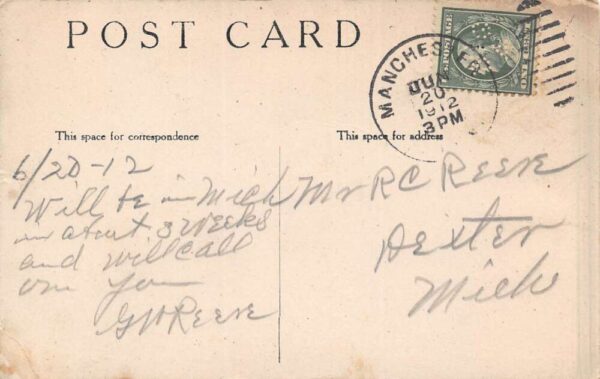 POST CARD
U.S. POSTAGE
ONE CENT
MANCHESTER
JUN
20
1912
3 PM
This space for correspondence
This space for address
6/20-12
Will be in Mich
in about 3 weeks
and will call
on you
G H Reeve
Mr R C Reeve
Dexter
Mich